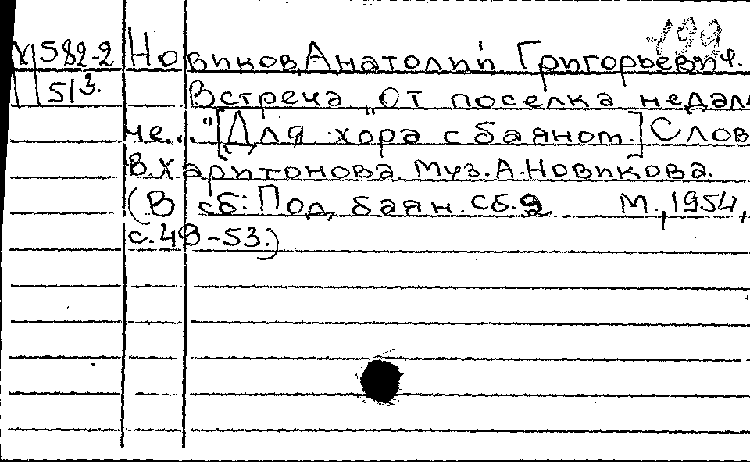 199
М582-2 Новиков, Анатолий Григорьевич.
513. Встреча „От поселка недале
че..." [Для хора с баяном.] Слов
В.Харитонова. Муз.А.Новикова.
(В сб: Под баян. сб.2 М.,1954,
с.48-53.)